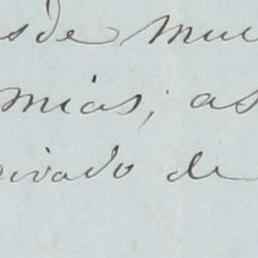 sde mu
mias; as
ivado de